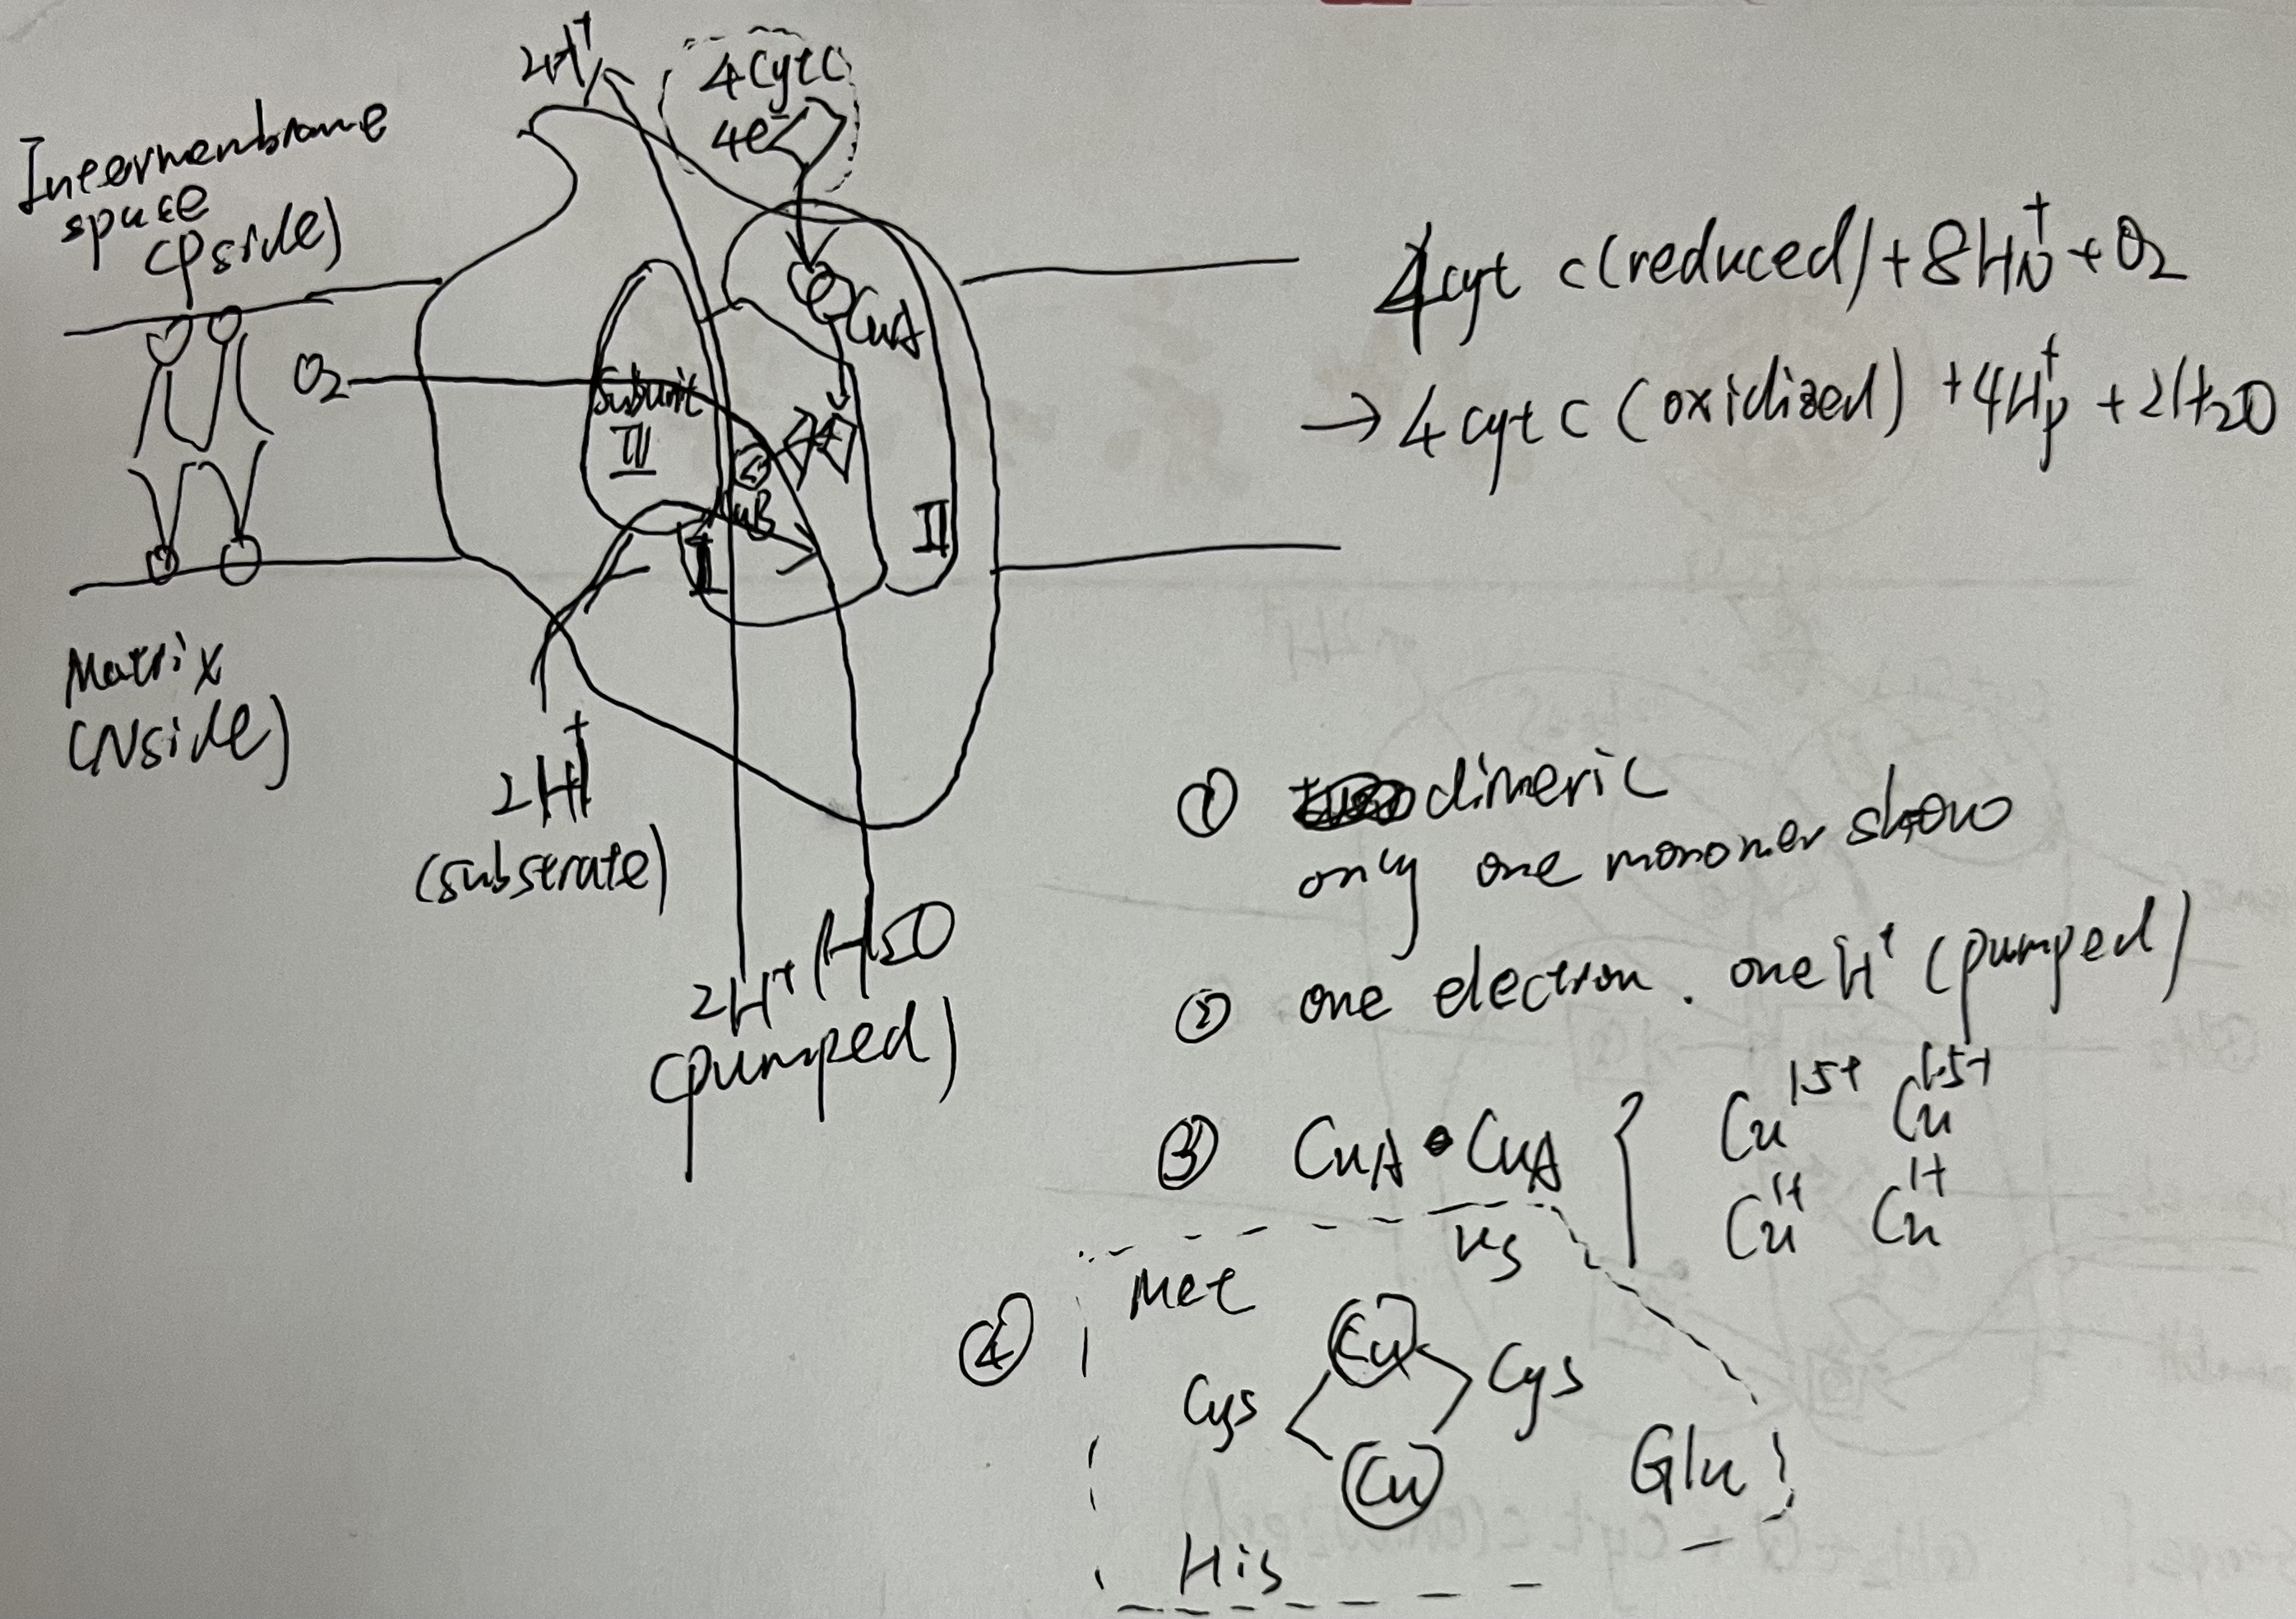 2H⁺
4cyt c
4e⁻
Intermembrane
space
(P side)
CuA
O₂
Subunit
III
CuB
I
II
Matrix
(N side)
2H⁺
(substrate)
2H⁺
H₂O
(pumped)
4cyt c (reduced) + 8H⁺N + O₂
→ 4 cyt c (oxidized) + 4H⁺p + 2H₂O
① dimeric
only one monomer show
② one electron. one H⁺ (pumped)
③ CuA • CuA { Cu¹·⁵⁺ Cu¹·⁵⁺
Cu¹⁺ Cu¹⁺
④ Met
Cu
Cys Cys
Cu Glu
His